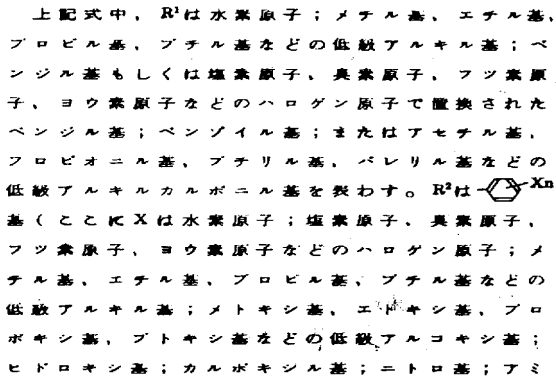 上記式中、R¹は水素原子；メチル基、エチル基、
プロピル基、ブチル基などの低級アルキル基；ベ
ンジル基もしくは塩素原子、臭素原子、フツ素原
子、ヨウ素原子などのハロゲン原子で置換された
ベンジル基；ベンゾイル基；またはアセチル基、
プロピオニル基、ブチリル基、バレリル基などの
低級アルキルカルボニル基を表わす。R²は Xn
基（ここにXは水素原子；塩素原子、臭素原子、
フツ素原子、ヨウ素原子などのハロゲン原子；メ
チル基、エチル基、プロピル基、ブチル基などの
低級アルキル基；メトキシ基、エトキシ基、プロ
ポキシ基、ブトキシ基などの低級アルコキシ基；
ヒドロキシ基；カルボキシル基；ニトロ基；アミ